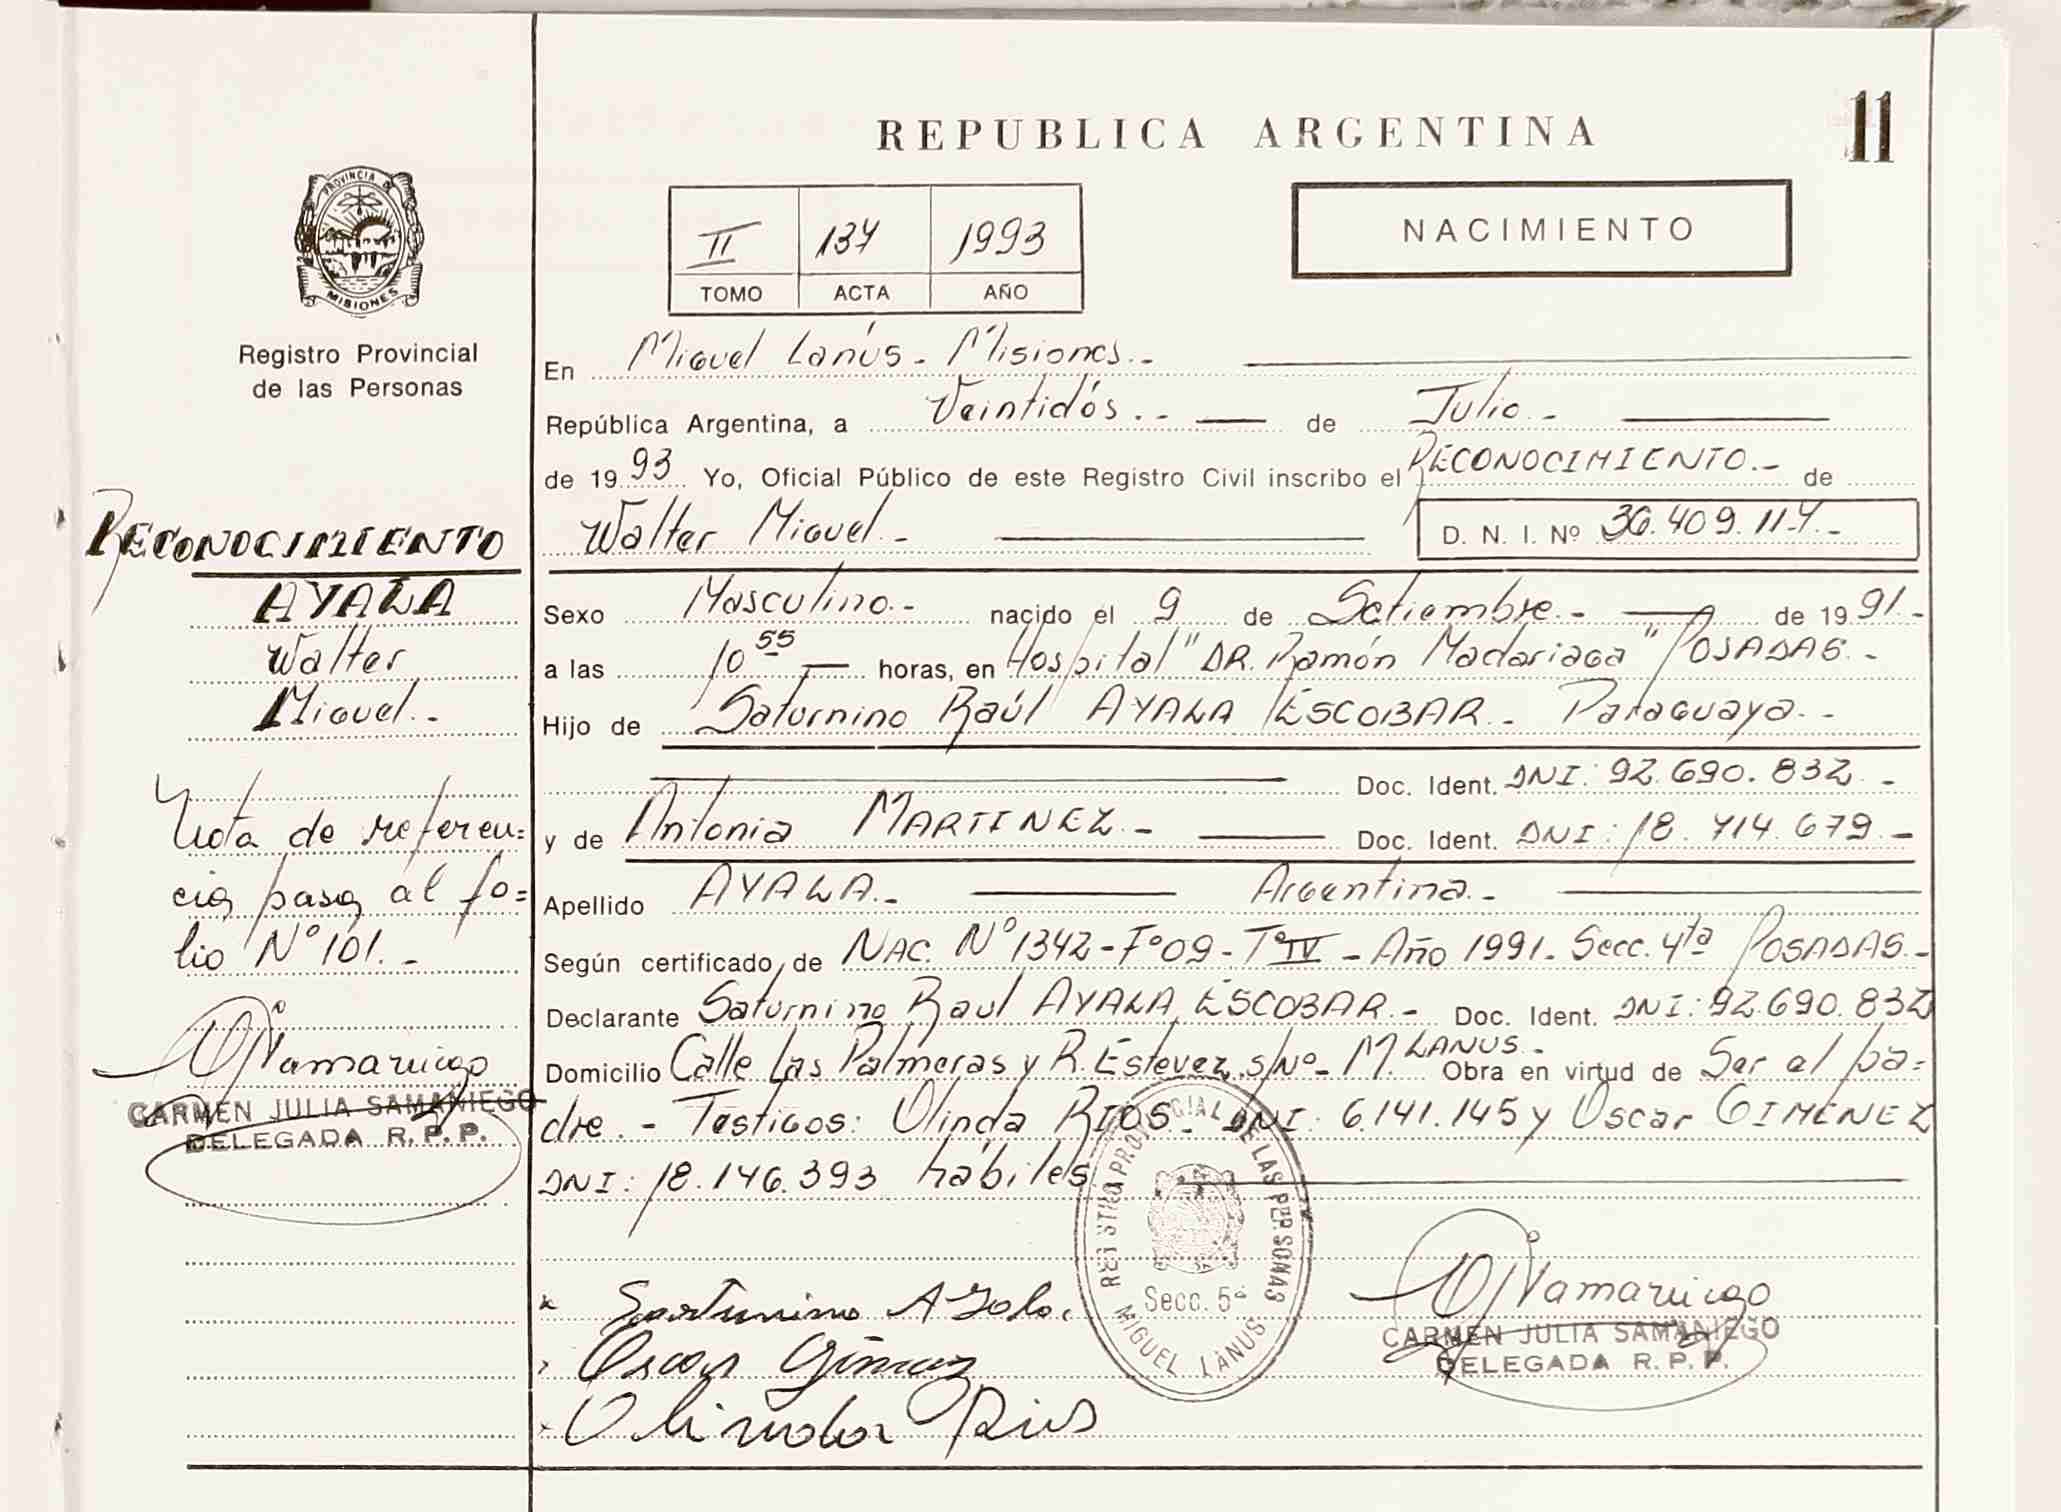 11
REPUBLICA ARGENTINA
PROVINCIA DE
MISIONES
II 137 1993
TOMO ACTA AÑO
NACIMIENTO
Registro Provincial
de las Personas
En Miguel Lanús - Misiones.-
República Argentina, a Veintidós.- de Julio.-
de 1993 Yo, Oficial Público de este Registro Civil inscribo el RECONOCIMIENTO.- de
Walter Miguel.- D. N. I. Nº 36.409.117.-
Sexo Masculino.- nacido el 9 de Setiembre.- de 1991.-
a las 10 55 horas, en Hospital "DR. Ramón Madariaga" POSADAS.-
Hijo de Saturnino Raúl AYALA ESCOBAR.- Paraguaya.-
Doc. Ident. DNI: 92.690.832.-
y de Antonia MARTINEZ.- Doc. Ident. DNI: 18.714.679.-
Apellido AYALA.- Argentina.-
Según certificado de NAC. Nº 1342-Fº09-Tº IV - Año 1991. Secc. 4ta POSADAS.-
Declarante Saturnino Raul AYALA ESCOBAR.- Doc. Ident. DNI: 92.690.832
Domicilio Calle Las Palmeras y R. Estevez s/Nº- M. LANUS.- Obra en virtud de Ser el pa=
dre.- Testigos: Olinda RIOS- DNI: 6.141.145 y Oscar GIMENEZ
DNI: 18.146.393 hábiles
RECONOCIMIENTO
AYALA
Walter
Miguel.-
Nota de referen=
cia pasa al fo=
lio Nº 101.-
CARMEN JULIA SAMANIEGO
DELEGADA R. P. P.
Saturnino Ayala.
Oscar Gimenez
Olinda Rios
REGISTRO PROVINCIAL DE LAS PERSONAS
Secc. 5ª
MIGUEL LANUS
CARMEN JULIA SAMANIEGO
DELEGADA R. P. P.